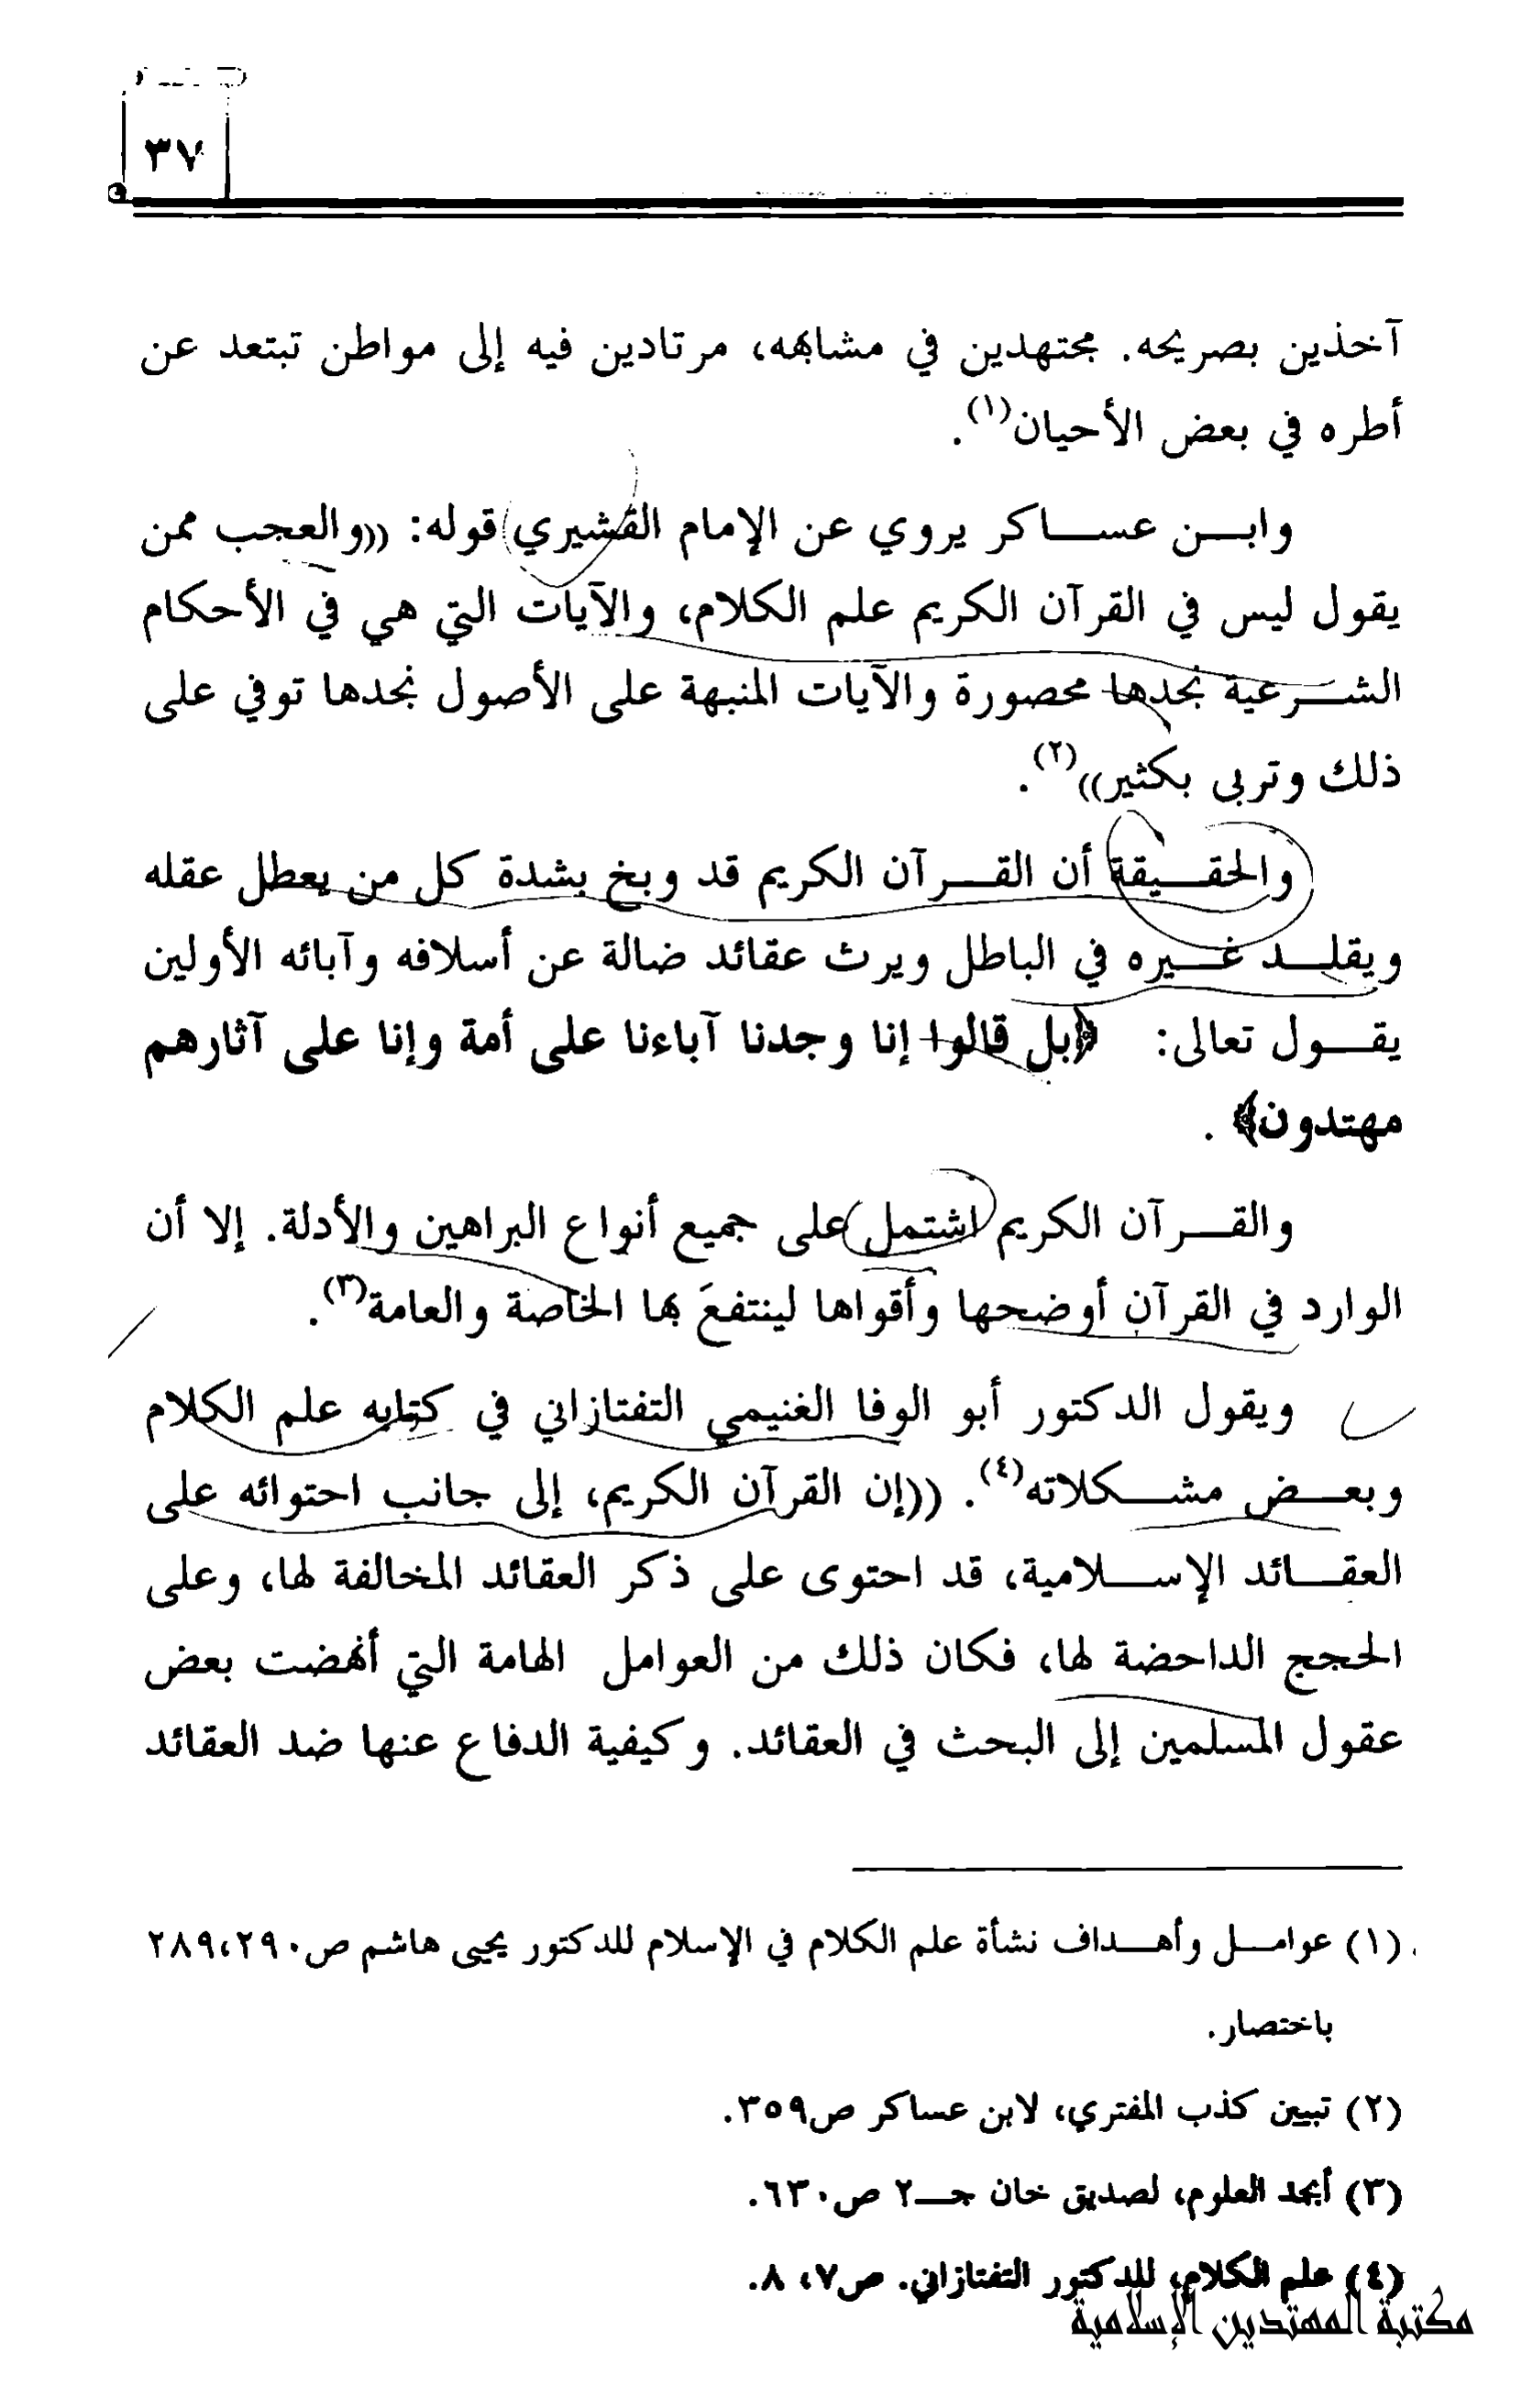 ٣٧
آخذين بصريحه. مجتهدين في مشابهه، مرتادين فيه إلى مواطن تبتعد عن
أطره في بعض الأحيان(١).
وابــن عســاكر يروي عن الإمام القشيري قوله: ((والعجب ممن
يقول ليس في القرآن الكريم علم الكلام، والآيات التي هي في الأحكام
الشــرعية نجدها محصورة والآيات المنبهة على الأصول نجدها توفي على
ذلك وتربى بكثير))(٢).
والحقــيقة أن القــرآن الكريم قد وبخ بشدة كل من يعطل عقله
ويقلــد غــيره في الباطل ويرث عقائد ضالة عن أسلافه وآبائه الأولين
يقــول تعالى: ﴿بل قالوا إنا وجدنا آباءنا على أمة وإنا على آثارهم
مهتدون﴾ .
والقــرآن الكريم اشتمل على جميع أنواع البراهين والأدلة. إلا أن
الوارد في القرآن أوضحها وأقواها لينتفعَ بها الخاصة والعامة(٣).
ويقول الدكتور أبو الوفا الغنيمي التفتازاني في كتابه علم الكلام
وبعــض مشــكلاته(٤). ((إن القرآن الكريم، إلى جانب احتوائه على
العقــائد الإســلامية، قد احتوى على ذكر العقائد المخالفة لها، وعلى
الحجج الداحضة لها، فكان ذلك من العوامل الهامة التي أنهضت بعض
عقول المسلمين إلى البحث في العقائد. وكيفية الدفاع عنها ضد العقائد
(١) عوامــل وأهــداف نشأة علم الكلام في الإسلام للدكتور يحيى هاشم ص٢٨٩،٢٩٠
باختصار.
(٢) تبيين كذب المفتري، لابن عساكر ص٣٥٩.
(٣) أبجد العلوم، لصديق خان جــ٢ ص٦٣٠.
(٤) علم الكلام، للدكتور التفتازاني. ص٧، ٨.
مكتبة المهتدين الإسلامية